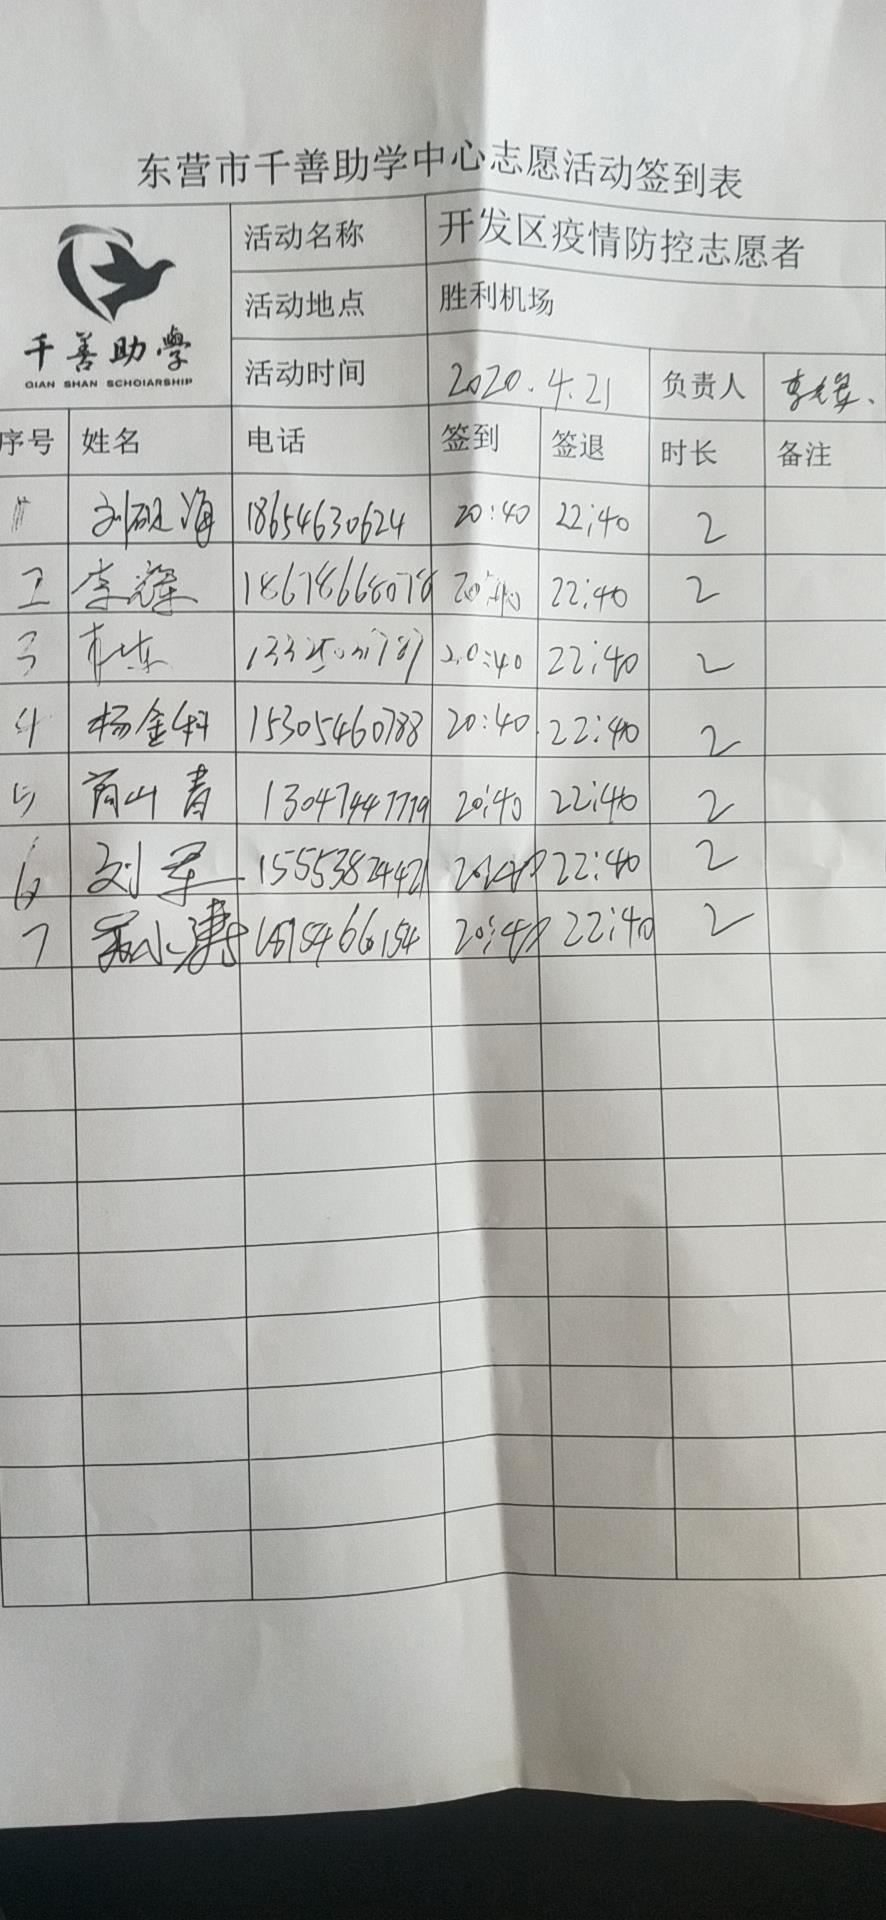 东营市千善助学中心志愿活动签到表
千善助學
QIAN SHAN SCHOIARSHIP
活动名称 开发区疫情防控志愿者
活动地点 胜利机场
活动时间 2020.4.21 负责人
序号 姓名 电话 签到 签退 时长 备注
刘砚海 18654630624 20:40 22:40 2
2 李 18678668078 20:40 22:40 2
3 20:40 22:40 2
4 杨金科 15305460788 20:40 22:40 2
5 山青 13047447779 20:40 22:40 2
6 刘军 15553824421 20:40 22:40 2
7 20:40 22:40 2